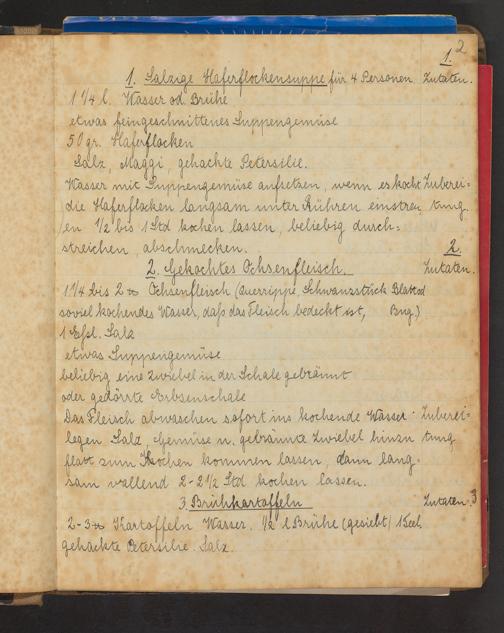 2
1.
1. Salzige Haferflockensuppe für 4 Personen Zutaten.
1 1/4 l. Wasser od. Brühe
etwas feingeschnittenes Suppengemüse
50 gr. Haferflocken
Salz, Maggi, gehackte Petersilie.
Wasser mit Suppengemüse aufsetzen, wenn es kocht Zuberei=
die Haferflocken langsam unter Rühren einstreu tung
en 1/2 bis 1 Std kochen lassen, beliebig durch=
streichen, abschmecken. 2.
2. Gekochtes Ochsenfleisch. Zutaten.
1 1/4 bis 2 ℔ Ochsenfleisch (Querrippe, Schwanzstück Blatt od
soviel kochendes Wasser, daß das Fleisch bedeckt ist, Bug.)
1 Eßl. Salz
etwas Suppengemüse
beliebig eine Zwiebel in der Schale gebräunt
oder gedörrte Erbsenschale
Das Fleisch abwaschen sofort ins kochende Wasser Zuberei=
legen Salz, Gemüse u. gebräunte Zwiebel hinzu tung
flott zum Kochen kommen lassen, dann lang=
sam wallend 2-2 1/2 Std kochen lassen.
3. Brühkartoffeln Zutaten. 3
2-3 ℔ Kartoffeln Wasser. 1/2 l Brühe (gesiebt)
gehackte Petersilie. Salz.